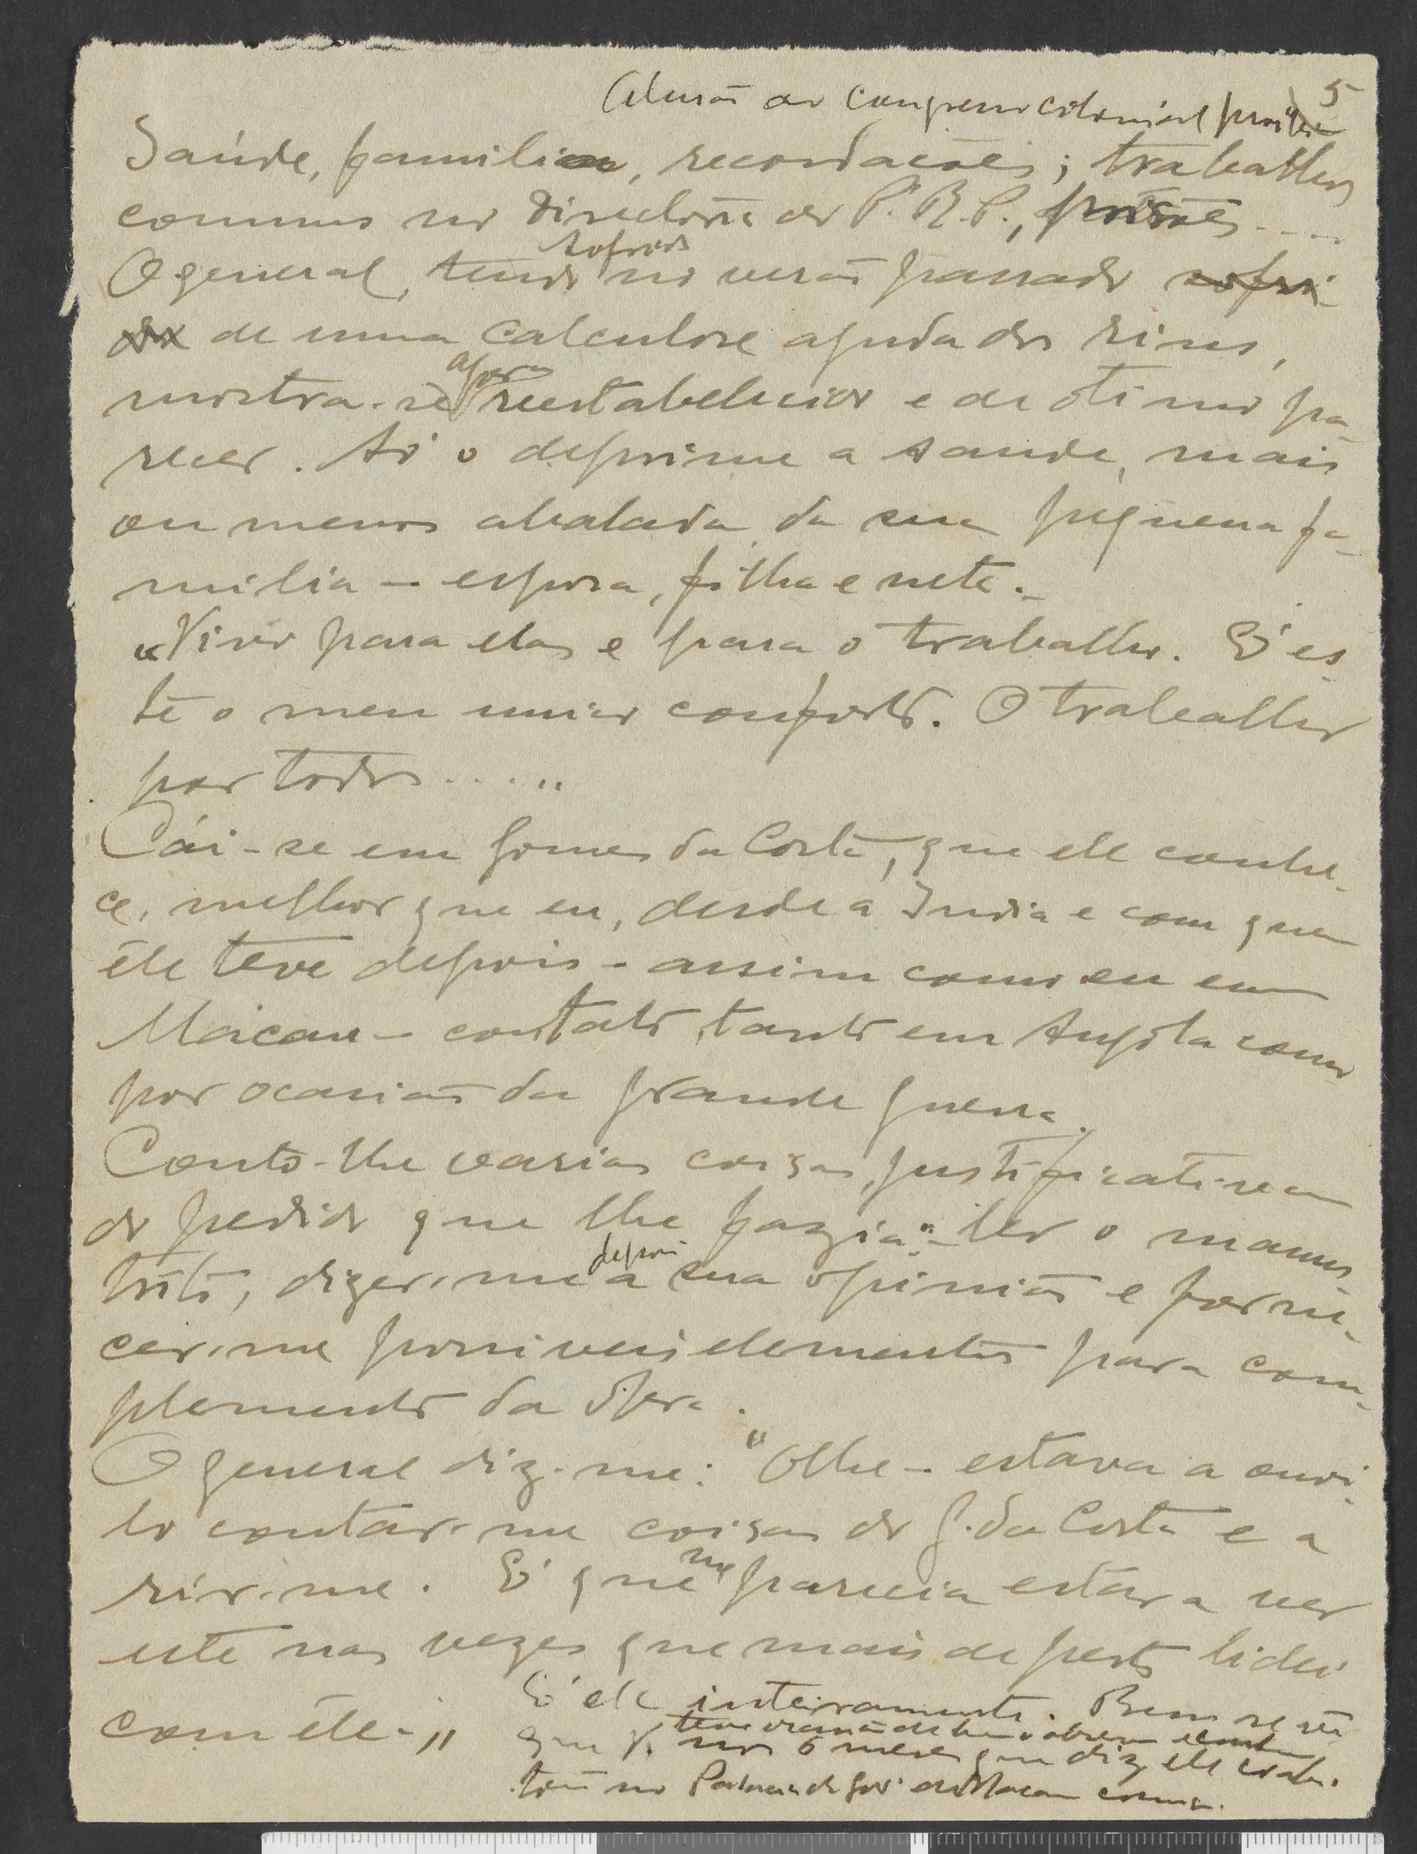 Alusão ao Congresso colonial
5
Saúde, familia, recordações; trabalhos
comuns no Directorio do P. R. P., prisões....
O general, tendo sofrido no verão passado sofri-
do de uma calculose aguda dos rins,
mostra-se agora restabelecido e de otimo pa-
recer. Só o deprime a saude, mais
ou menos abalada, da sua pequena fa-
milia - esposa, filha e neta.-
"Vivo para elas e para o trabalho. É es-
te o meu unico conforto. O trabalho
por todos....."
Cái-se em Gomes da Costa, que ele conhe-
ce, melhor que eu, desde a India e com quem
êle teve depois - assim como eu em
Macau - contato, tanto em Angola como
por ocasião da grande guerra.
Conto-lhe varias coisas, justificativas
do pedido que lhe fazia: - ler o manus
trito, dizer-me depois a sua opinião e forne-
cer-me possiveis elementos para com-
plemento da obra.
O general diz-me: "Olhe - estava a ouvi-
lo contar-me coisas do G. da Costa e a
rir-me. É que me parecia estar a ver
este nas vezes que mais de perto lidei
com êle-"
É ele inteiramente. Bem se vê
que V. teve ocasião de bem o observar
nos 6 meses que diz ele habi-
tou no Palacio do Gov. de Macau comigo.